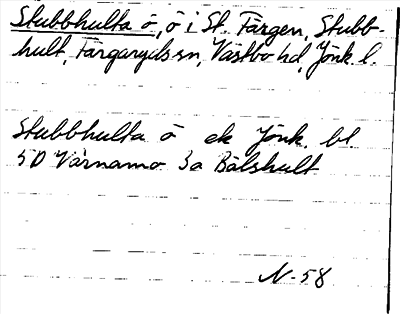 Stubbhulta ö, ö i St. Färgen, Stubb-
hult, Färgaryds sn, Västbo hd, Jönk l.
Stubbhulta ö ek Jönk bl
5D Värnamo 3a Bälshult
N-58